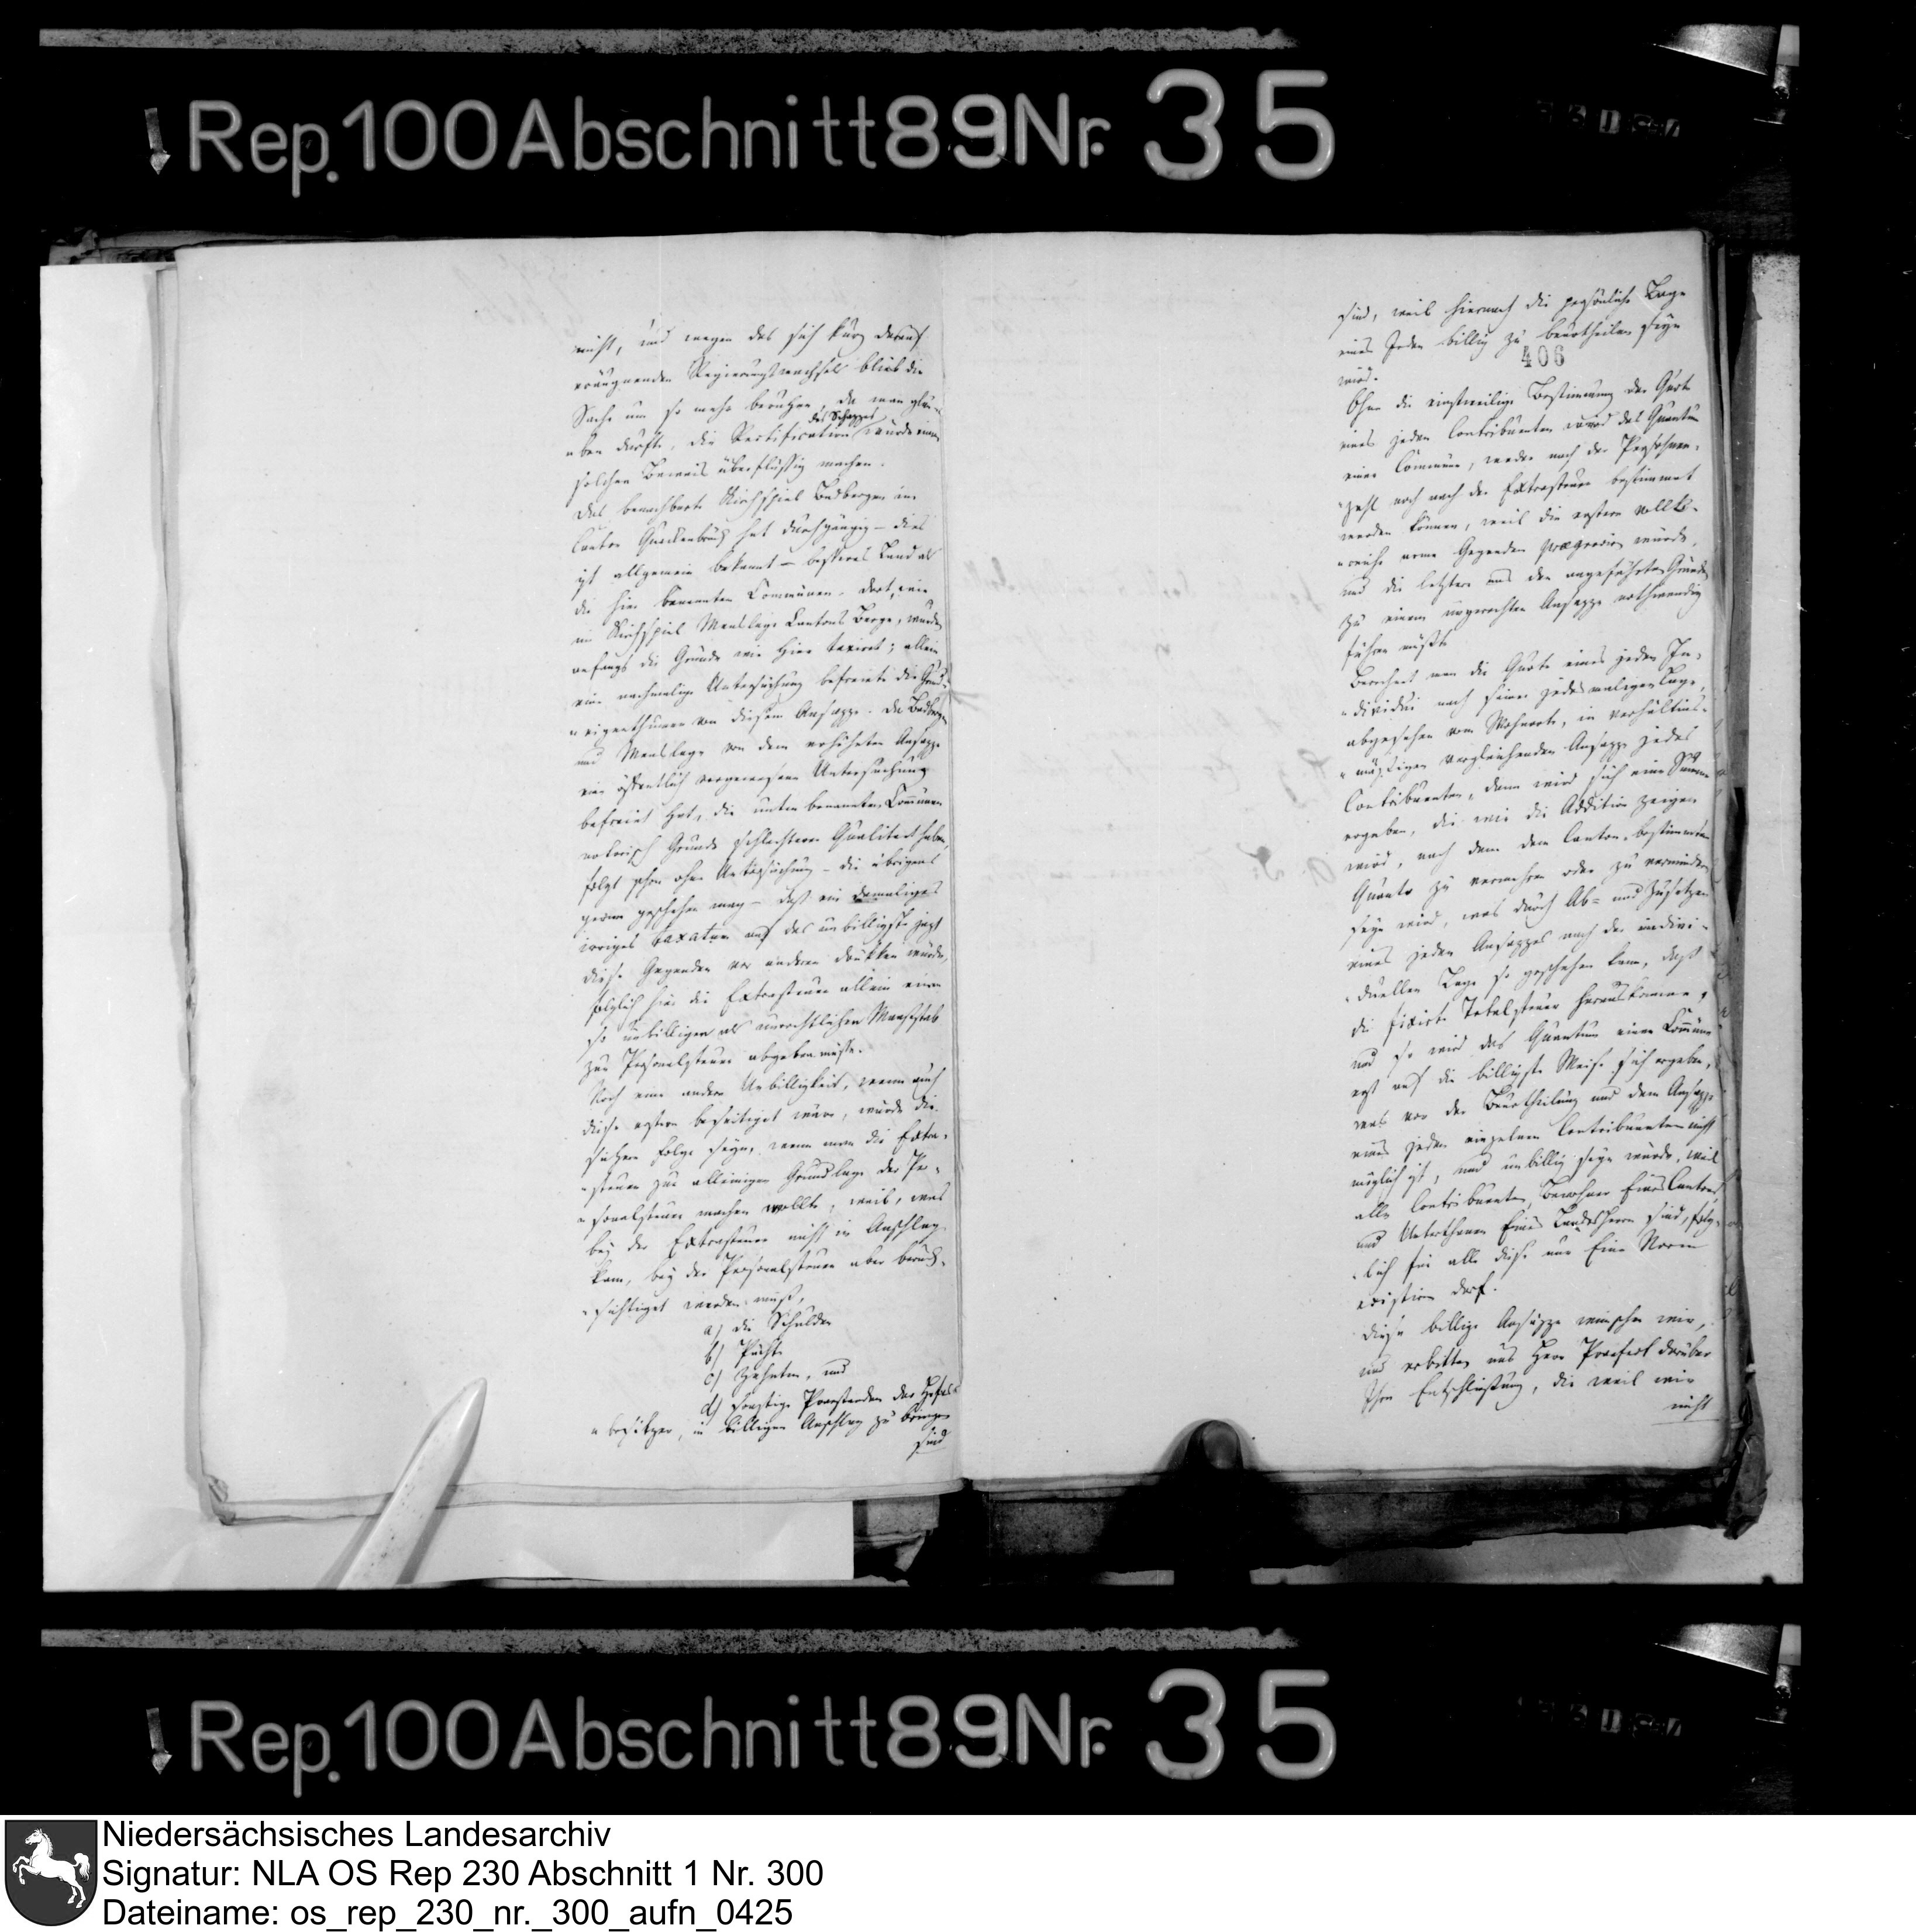 Rep. 100 Abschnitt 89 Nr. 35
nicht, und wegen des sich kurz darauf
eräugnenden Regierungswechsel blieb die
Sache um so mehr beruhen, da man glau-
ben durfte, die Rectification des Schazzes würde einen
solchen Beweis überflüssig machen.
Das benachbarte Kirchspiel Badbergen im
Canton Quackenbrück hat durchgängig – dies
ist allgemein bekannt – besseres Land als
die hier benannten Communen. Dort, wie
im Kirchspiel Menslage Cantons Berge, wurden
anfangs die Gründe wie hier taxiret; allein
eine nachmalige Untersuchung befreiete die Grund-
eigenthümer von diesem Ansazze. Da Badbergen
und Menslage von dem erhöheten Ansazze
eine öffentlich vorgewesene Untersuchung
befreiet hat, die unten benannten Communen
notorisch Gründe schlechterer Qualitaet haben,
folgt schon ohne Untersuchung – die übrigens
gerne geschehen mag – daß ein damaliges
irriges taxatum auf das unbilligste jezt
diese Gegenden vor anderen drükken würde,
folglich hier die Extrasteuer allein einen
so unbilligen als unrechtlichen Maasstab
zur Personalsteuer abgeben müsse.
Noch eine andere Unbilligkeit, wenn auch
diese erstere beseitiget wäre, würde die
sichere Folge seyn, wenn man die Extra-
steuer zur alleinigen Grundlage der Per-
sonalsteuer machen wollte, weil, was
bey der Extrasteuer nicht in Anschlag
kam, bey der Personalsteuer aber berück-
sichtiget werden muß,
a) die Schulden
b) Pächte
c) Zehnten, und
d) sonstige Praestanden der Hofes-
besitzer, in billigen Anschlag zu bringen
sind
sind, weil hiernach die persönliche Lage
eines Jeden billig zu beurtheilen seyn
wird.
406
Ohne die einstweilige Bestimmung der Quote
eines jeden Contribuenten wird das Quantum
einer Commune, weder nach der Personen-
zahl noch nach der Extrasteuer bestimmet
werden können, weil die erstere volk-
reiche arme Gegenden praegraviren würde,
und die letztere aus den angeführten Gründen
zu einem ungerechten Ansazze nothwendig
führen müßte
Berechnet man die Quote eines jeden In-
dividui nach seiner jedesmaligen Lage,
abgesehen vom Wohnorte, in verhältnis-
mäßigen vergleichenden Ansazze jedes
Contribuenten, dann wird sich eine Summe
ergeben, die wie die Addition zeigen
wird, nach dem dem Canton bestimmten
Quanto zu vermehren oder zu vermindern
seyn wird, was durch Ab- und Zusetzen
eines jeden Ansazzes nach der indivi-
duellen Lage so geschehen kann, daß
die fixirte Totalsteuer herauskomme,
und so wird das Quantum einer Commune
erst auf die billigste Weise sich ergeben,
was vor der Beurtheilung und dem Ansazze
eines jeden einzelnen Contribuenten nicht
möglich ist, und unbillig seyn würde, weil
alle Contribuenten Bewohner Eines Cantons,
und Unterthanen Eines Landesherrn sind, folg-
lich für alle diese nur Eine Norm
existiren darf.
Diese billige Ansäzze wünschen wir,
und erbitten uns Herr Praefect darüber
Ihre Entschließung, die weil wir
nicht
Rep. 100 Abschnitt 89 Nr. 35
Niedersächsisches Landesarchiv
Signatur: NLA OS Rep 230 Abschnitt 1 Nr. 300
Dateiname: os_rep_230_nr._300_aufn_0425